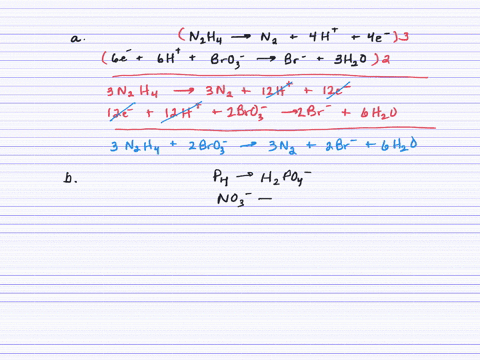 a. (N₂H₄ → N₂ + 4H⁺ + 4e⁻)3
(6e⁻ + 6H⁺ + BrO₃⁻ → Br⁻ + 3H₂O)2
3N₂H₄ → 3N₂ + 12H⁺ + 12e⁻
12e⁻ + 12H⁺ + 2BrO₃⁻ → 2Br⁻ + 6H₂O
3N₂H₄ + 2BrO₃⁻ → 3N₂ + 2Br⁻ + 6H₂O
b. P₄ → H₂PO₄⁻
NO₃⁻ —